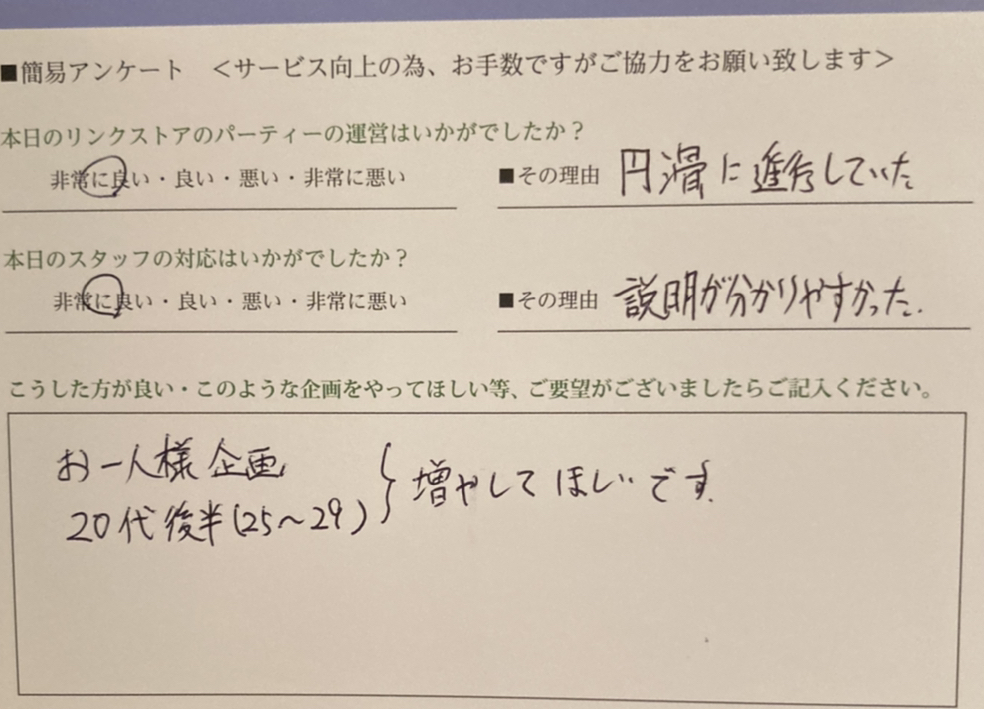 ■簡易アンケート ＜サービス向上の為、お手数ですがご協力をお願い致します＞
本日のリンクストアのパーティーの運営はいかがでしたか？
非常に良い・良い・悪い・非常に悪い ■その理由 円滑に進行していた
本日のスタッフの対応はいかがでしたか？
非常に良い・良い・悪い・非常に悪い ■その理由 説明が分かりやすかった.
こうした方が良い・このような企画をやってほしい等、ご要望がございましたらご記入ください。
お一人様企画
20代後半(25～29) } 増やしてほしいです.